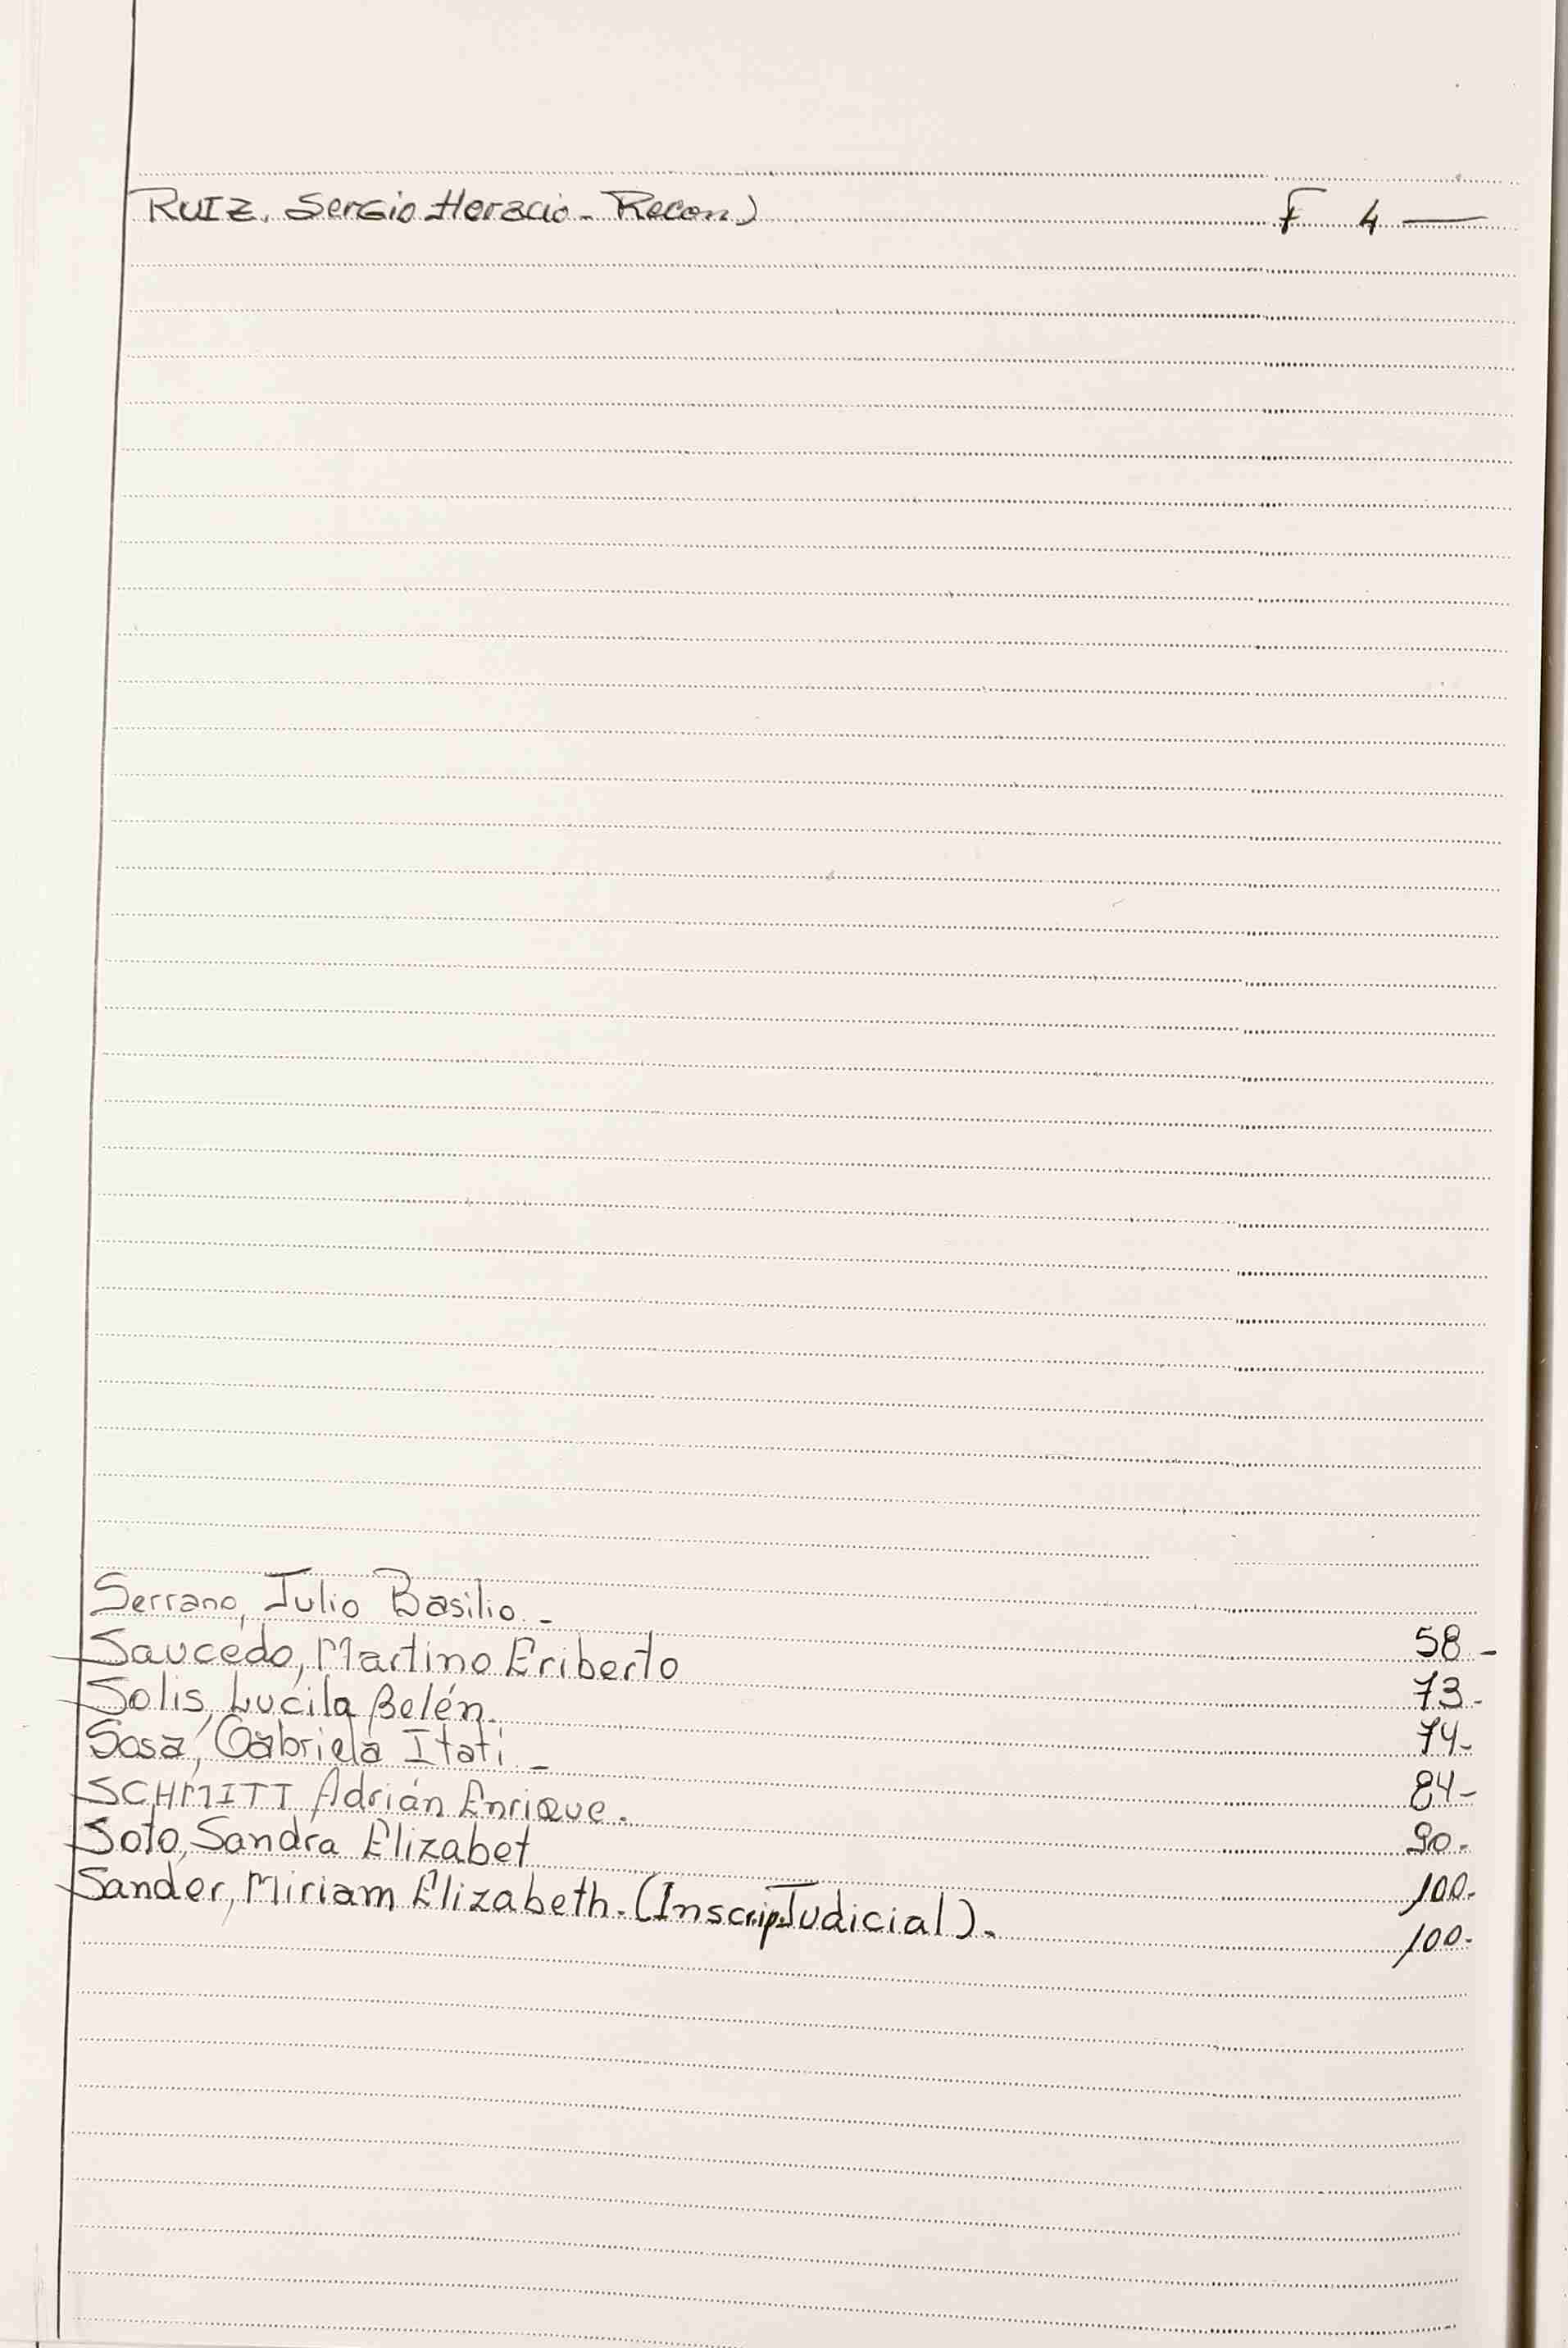 RUIZ. Sergio Horacio - Recon) F 4 —
Serrano, Julio Basilio. - 58.-
Saucedo, Martino Eriberto 73.-
Solis, Lucila Belén. 74-
Sosa, Gabriela Itati - 84-
SCHMITT Adrián Enrique. 90.
Soto, Sandra Elizabet 100.
Sander, Miriam Elizabeth. (Inscrip. Judicial). 100.